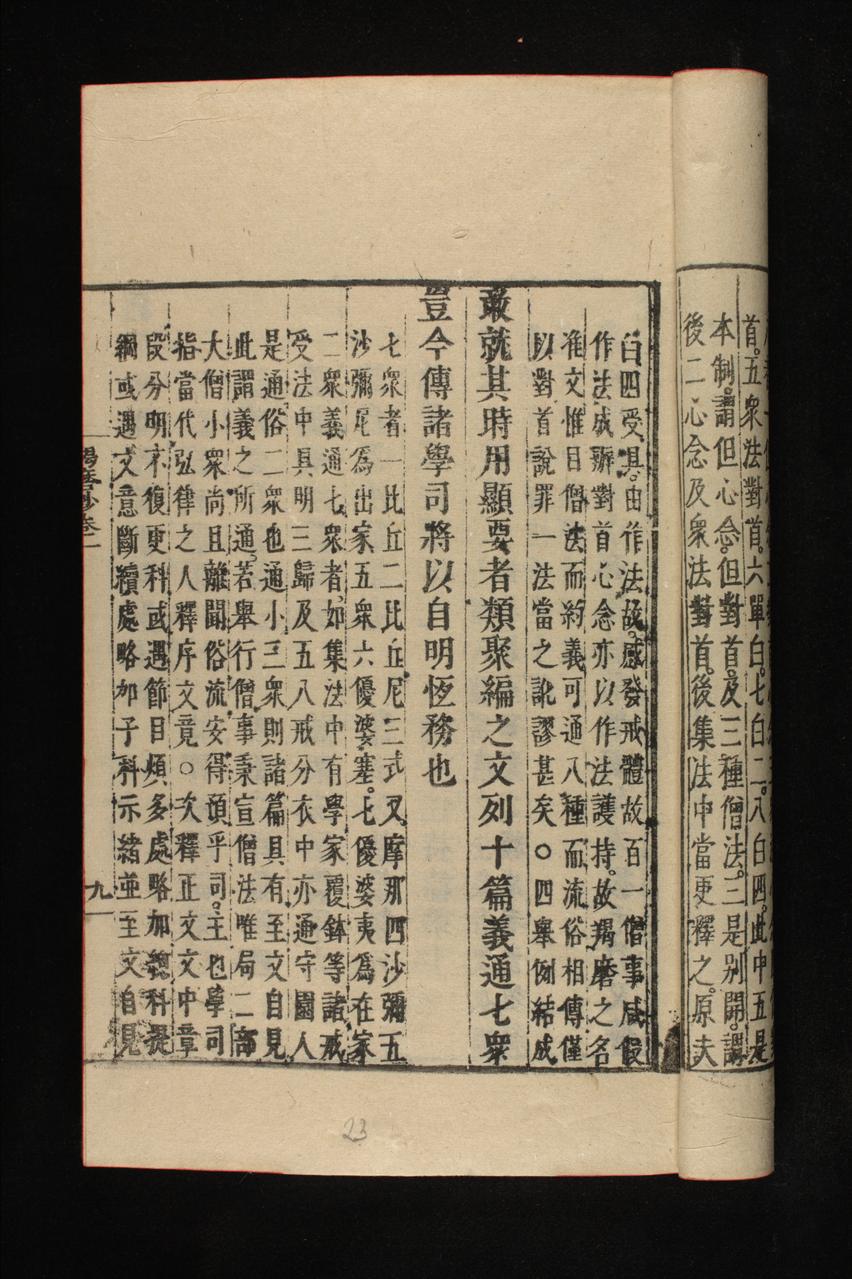 首。五衆法對首。六單白。七白二。八白四。此中五是
本制。謂但心念。但對首。及三種僧法。三是別開。謂
後二心念及衆法對首。後集法中當更釋之。原夫
白四受。具由作法故。感發戒體故百一僧事咸假
作法成辦對首心念亦以作法護持。故羯磨之名
准文惟目僧法而約義可通八種而流俗相傳僅
以對首說罪一法當之訛謬甚矣〇四舉例結成
敢就其時用顯要者類聚編之文列十篇義通七衆
豈今傳諸學司將以自明恆務也
七衆者一比丘二比丘尼三式叉摩那四沙彌五
沙彌尼為出家五衆六優婆塞。七優婆夷為在家
二衆義通七衆者如集法中有學家覆鉢等諸戒
受法中具明三歸及五八戒分衣中亦通守園人
是通俗二衆也通小三衆則諸篇具有至文自見
此謂義之所通。若舉行僧事秉宣僧法唯局二部
大僧小衆尚且離聞俗流安得預乎司。主也學司
指當代弘律之人釋序文竟〇次釋正文文中章
段分明不復更科或遇節目頻多處略加總科提
綱或遇文意斷續處略加子科示緒並至文自見
羯磨 卷一
九
23